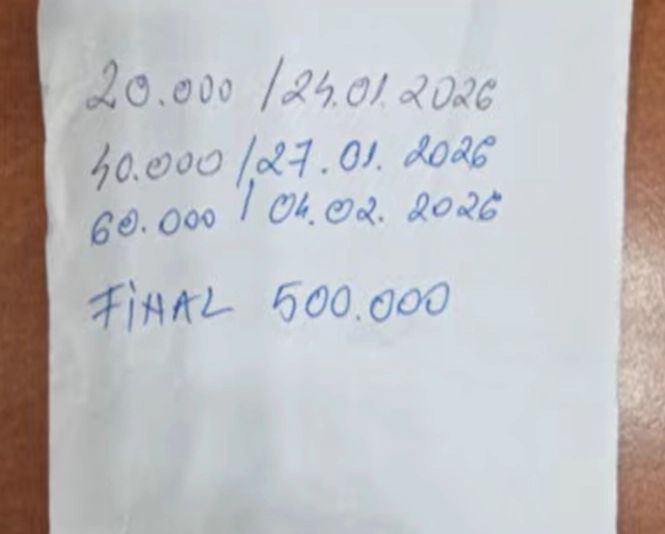 20.000 / 24.01.2026
40.000 / 27.01.2026
60.000 / 04.02.2026
FiNAL 500.000